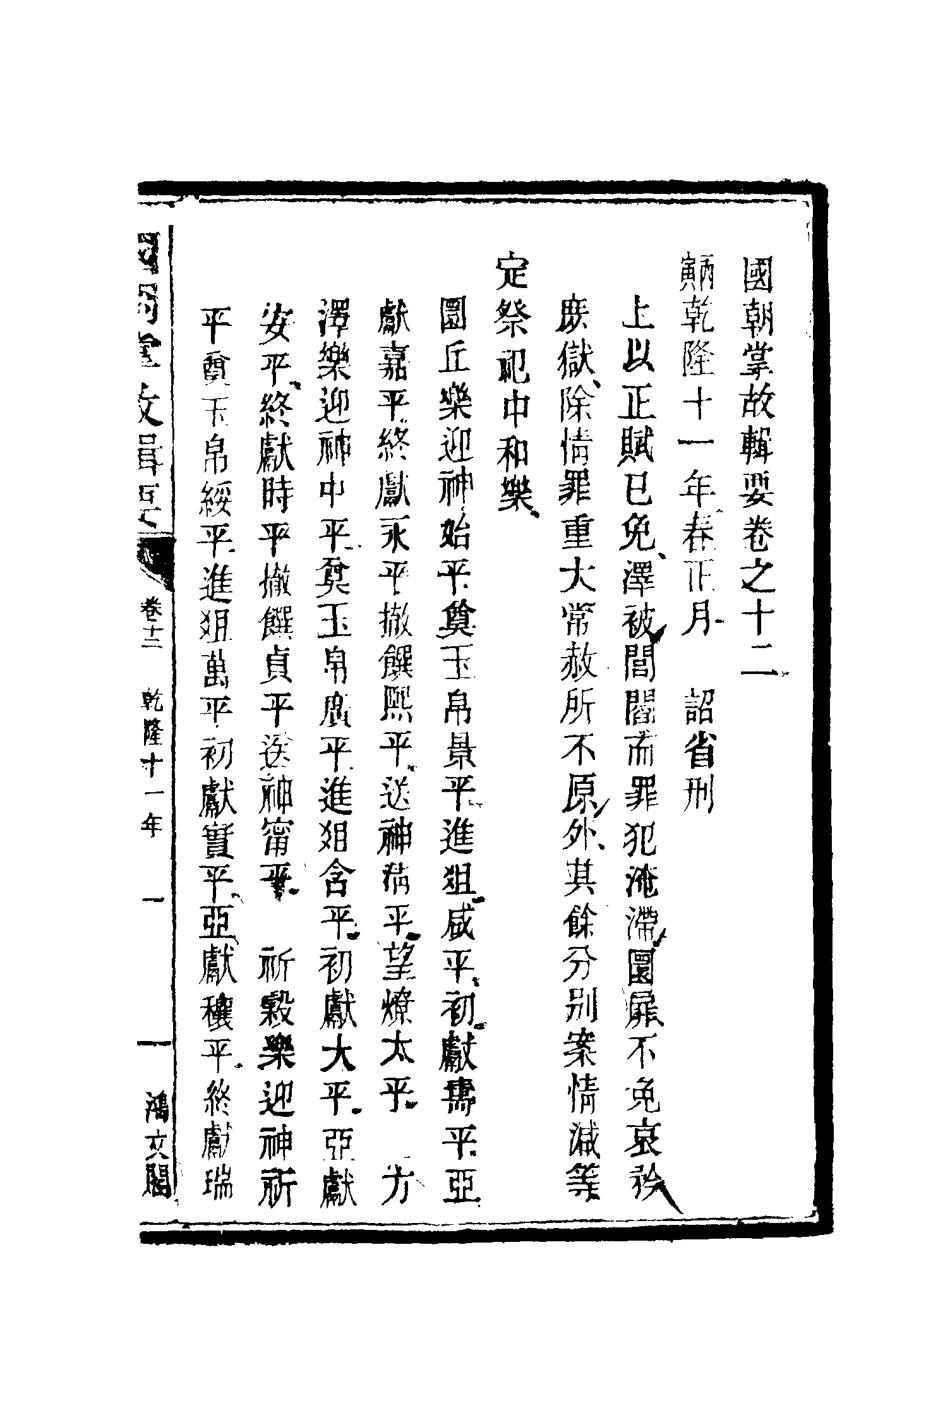 國朝掌故輯要卷之十二
丙寅乾隆十一年春正月　詔省刑
上以正賦已免、澤被閭閻而罪犯淹滯、圜扉不免哀矜
庶獄、除情罪重大常赦所不原外、其餘分别案情減等
定祭祀中和樂、
圜丘樂迎神始平、奠玉帛景平、進俎咸平、初獻壽平、亞
獻嘉平、終獻永平、撤饌熙平、送神清平、望燎太平、　方
澤樂迎神中平、奠玉帛廣平、進俎含平、初獻大平、亞獻
安平、終獻時平、撤饌貞平、送神甯平、　祈穀樂迎神祈
平、奠玉帛綏平、進俎萬平、初獻寶平、亞獻穰平、終獻瑞
國朝掌故輯要　卷十二　乾隆十一年　一　鴻文閣